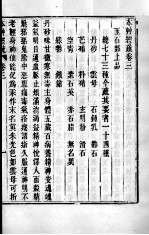 本草經疏卷三
玉石部上品
總七十三種今疏其要者一十四種
丹砂
雲母
石鍾乳
礬石
芒硝
朴硝
滑石
空青
紫石英
赤石脂
丹砂味甘微寒無毒主身體五臟百病養精神安魂魄
益氣明目通血脈止煩滿消渴益精神悅澤人面殺精
魅邪惡鬼除中惡腹痛毒氣疥瘻諸瘡久服通神明不
老輕身神仙能化為汞作末名真朱光色如雲母可析